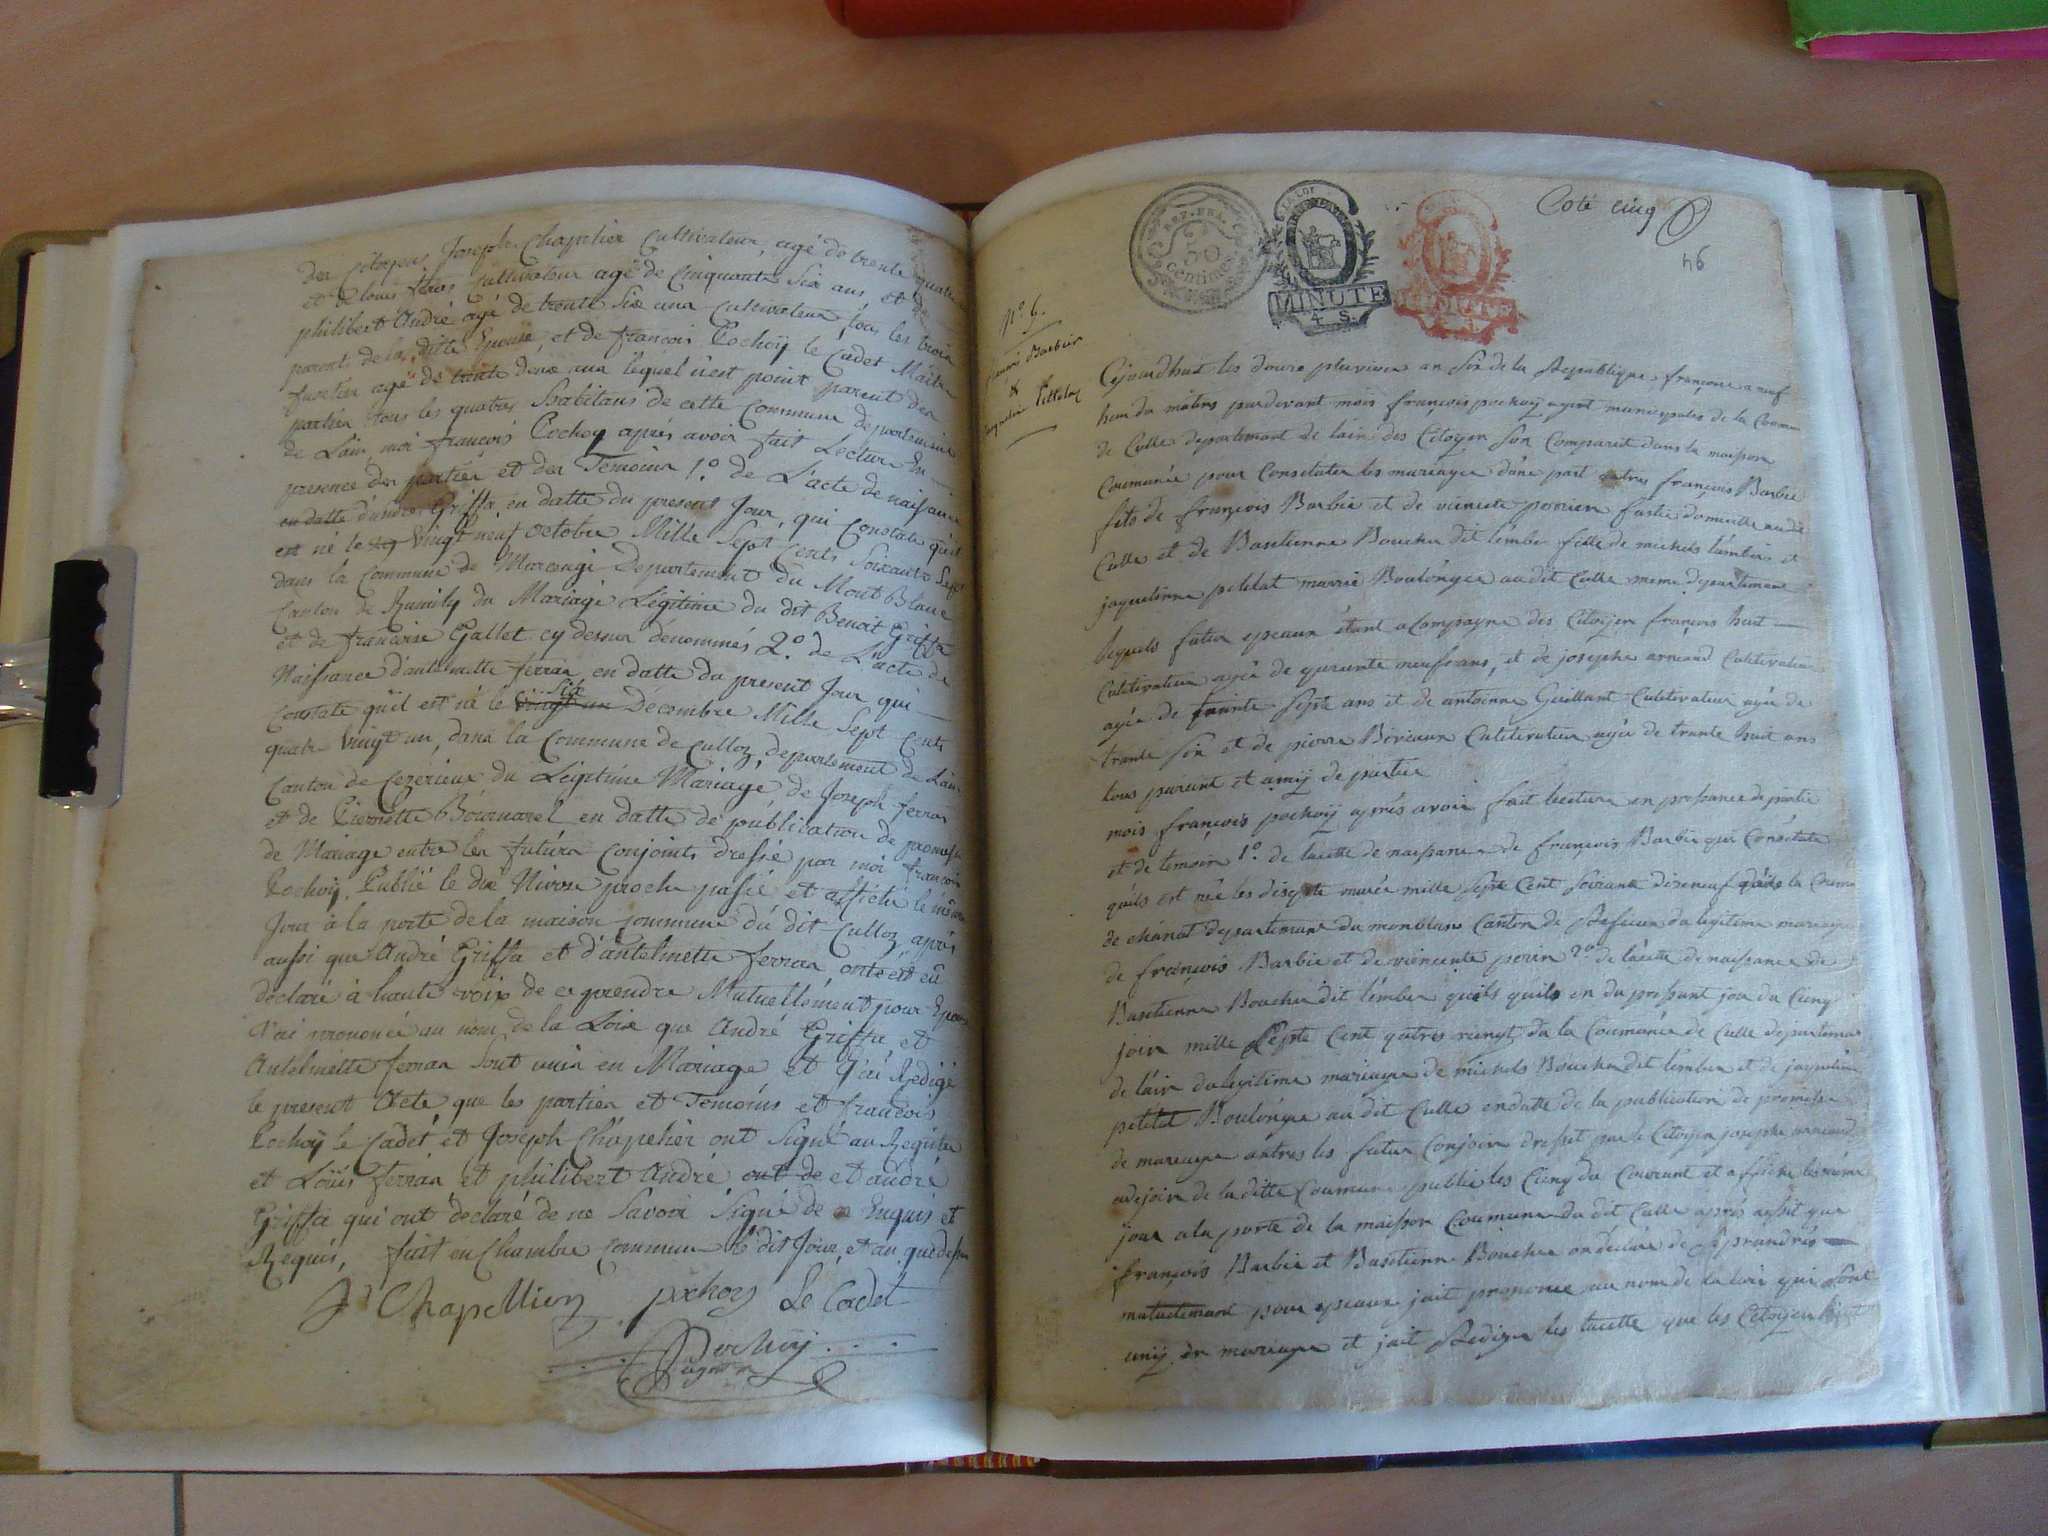 des Citoyens Joseph Chapelier Cultivateur, agé de trente quatre
et de louis ferras Cultivateur agé de Cinquante Six ans et de
philibert André agé de trente Six ans Cultivateur, tous les trois
parents de la ditte Epouse, et de françois Pochoÿ le Cadet Maitre
agé de trente deux ans lequel n'est point parent des
parties tous les quatres Habitans de cette Commune departement
de Lain, moi françois Pochoy après avoir fait Lecture En
presence des parties et des Temoins 1.º de L'acte de naissance
en datte d'andré Griffa en datte du present Jour, qui Constate qu'il
est né le vingt neuf octobre Mille Sept Cents Soixante Sept
dans la Commune de Departement du Mont Blanc
Canton de Rumily du Mariage Légitime du dit Benoit Griffa
et de francoise Gallet cy dessus dénommés 2.º de L'acte de
Naissance d'antelmette ferran en datte du present Jour qui
Constate qu'il est né le vingt un six Decembre Mille Sept Cents
quatre Vingt un, dans la Commune de Culloz, departement de Lain
Canton de Cezerieux du Légitime Mariage de Joseph ferran
et de Pierrette Bournarel en datte de publication de promesse
de Mariage entre les futurs Conjoints dressé par moi francois
Pochoÿ. Publié le dix Nivose proche passé et affiché le même
Jour à la porte de la maison commune du dit Culloz, après
aussi que André Griffa et d'antelmette ferran, ont été eû
déclaré à haute voix de ce prendre Mutuellement pour Epoux
J'ai prononcé au nom de la Loix que André Griffa et
Antelmette ferran Sont unis en Mariage et J'ai Redigé
le present Acte, que les parties et Temoins et francois
Pochoÿ le Cadet et Joseph Chapelier ont Signé au Registre
et Loüis ferran et philibert André ont de et andré
Griffa qui ont déclaré de ne Savoir Signé de ce Enquis et
Requis, fait en Chambre Commune le dit Jour et an que dessus
Jh Chapellien pochoy Le Cadet
Pochoÿ
agent
Coté cinq
46
REP. FRA.
50
centimes
LA LOI
MINUTE
4 S.
MINUTE
Nº 6.
françois Barbier
&
Cejourdhuit les douze pluviose an Six de la Republique françoise a neuf
heur du mâtins pardevant mois françois pochoy agent municipale de la Commune
de Culle departement de lain des Citoyen Son Comparut dans la maison
Coumûne pour Constater les mariages d'une part entres françois Barbie
fils de françois Barbie et de viencente domicille au dit
Culle et de Bastienne Boucher dit lémber fille de michels lámber et
jaquelinne petitat marrié Boulónger au dit Culle meme departement
lequels futur epeaux étant acompagne des Citoyen françois huit
Culitivateur agée de quarante neuf ans, et de josephe arneaud Culitivateur
agée de trante Septe ans et de antoinne Guillant Culitivateur agée de
trante Six et de pierre Culitivateur agée de trante huit ans
tous parent et amij de partie
mois françois pochoÿ après avoir fait lecture en presance de partie
et de temoin 1.º de lacette de naissance de françois Barbie qui Constate
quils est née les diseptе mille Septe Cent Soixante diseneuf la Comune
de chánat departemant du monblanc Canton de du legitime mariage
de françois Barbie et de viencente 2.º de lacette de naissance de
Bastienne Boucher dit lémber quils quils en du present jour du Cinq
join mille Septe Cent quatres veingt de la Coumûne de Culle departement
de láin du legitime mariage de michels Boucher dit lémber et de jaqueline
petitat Boulónger au dit Culle en datte de la publication de promesse
de mariage antres les futur Conjoin dresset par le Citoyen josephe arneaud
adejoin de la ditte Coumune publie les Cinq du Courant et affiche lesmême
jour a la porte de la maison Coumune du dit Culle après aussit que
françois Barbie et Bastienne Boucher on déclaré de Ce prandrés
mutuellemant pour epeaux jait prononce au nom de la loix qui Sont
unij en mariage et jait Rediger les lacette que les Citoyen huit